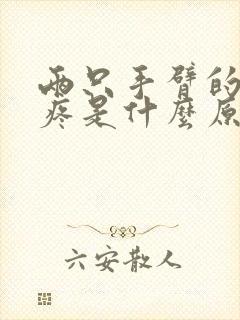 两只手臂的
疼是什麼原
六安散人